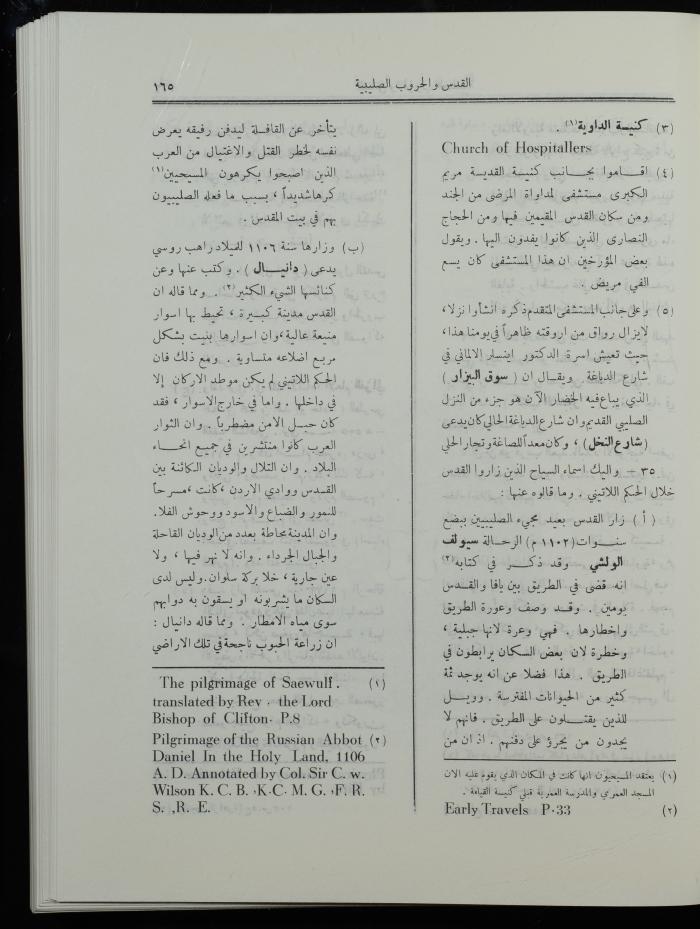 القدس والحروب الصليبية
١٦٥
(٣) كنيسة الداوية(١) .
Church of Hospitallers
(٤) اقاموا بجانب كنيسة القديسة مريم
الكبرى مستشفى لمداواة المرضى من الجند
ومن سكان القدس المقيمين فيها ومن الحجاج
النصارى الذين كانوا يفدون اليها . ويقول
بعض المؤرخين ان هذا المستشفى كان يسع
الفي مريض .
(٥) وعلى جانب المستشفى المتقدم ذكره انشأوا نزلا،
لايزال رواق من اروقته ظاهراً في يومنا هذا،
حيث تعيش اسرة الدكتور اينسلر الالماني في
شارع الدباغة . ويقال ان ( سوق البزار )
الذي يباع فيه الخضار الآن هو جزء من النزل
الصليبي القديم وان شارع الدباغة الحالي كان يدعى
(شارع النخل) ، وكان معداً للصاغة وتجار الحلي
٣٥ – واليك اسماء السياح الذين زاروا القدس
خلال الحكم اللاتيني . وما قالوه عنها :
( أ ) زار القدس بعيد مجيء الصليبيين ببضع
سنوات (١١٠٢ م) الرحالة سيولف
الولشي وقد ذكر في كتابه(٢)
انه قضى في الطريق بين يافا والقدس
يومين . وقد وصف وعورة الطريق
واخطارها . فهي وعرة لانها جبلية ،
وخطرة لان بعض السكان يرابطون في
الطريق . هذا فضلا عن انه يوجد ثمة
كثير من الحيوانات المفترسة . وويل
للذين يقتلون على الطريق . فانهم لا
يجدون من يجرؤ على دفنهم . اذ ان من
(١) يعتقد المسيحيون انها كانت في المكان الذي يقوم عليه الان
المسجد العمري والمدرسة العمرية قبلي كنيسة القيامة .
(٢) Early Travels P. 33
يتأخر عن القافلة ليدفن رفيقه يعرض
نفسه لخطر القتل والاغتيال من العرب
الذين اصبحوا يكرهون المسيحيين(١)
كرها شديداً ، بسبب ما فعله الصليبيون
بهم في بيت المقدس .
(ب) وزارها سنة ١١٠٦ لميلاد راهب روسي
يدعى ( دانيال ) . وكتب عنها وعن
كنائسها الشيء الكثير(٢) . ومما قاله ان
القدس مدينة كبيرة ، تحيط بها اسوار
منيعة عالية ، وان اسوارها بنيت بشكل
مربع اضلاعه متساوية . ومع ذلك فان
الحكم اللاتيني لم يكن موطد الاركان إلا
في داخلها . واما في خارج الاسوار ، فقد
كان حبل الامن مضطرباً . وان الثوار
العرب كانوا منتشرين في جميع انحاء
البلاد . وان التلال والوديان الكائنة بين
القدس ووادي الاردن ، كانت ،مسرحاً
للنمور والضباع والاسود ووحوش الفلا.
وان المدينة محاطة بعدد من الوديان القاحلة
والجبال الجرداء . وانه لا نهر فيها ، ولا
عين جارية ، خلا بركة سلوان. وليس لدى
السكان ما يشربونه او يسقون به دوابهم
سوى مياه الامطار . ومما قاله دانيال :
ان زراعة الحبوب ناجحة في تلك الاراضي
(١) The pilgrimage of Saewulf .
translated by Rev . the Lord
Bishop of Clifton. P.8
(٢) Pilgrimage of the Russian Abbot
Daniel In the Holy Land, 1106
A. D. Annotated by Col. Sir C. w.
Wilson K. C. B. ,K.C. M. G. ,F. R.
S. ,R. E.